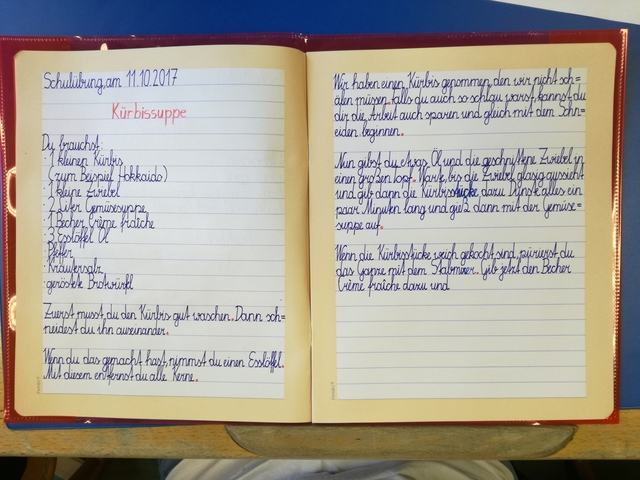 Schulübung, am 11.10.2017
Kürbissuppe
Du brauchst:
· 1 kleinen Kürbis
(zum Beispiel Hokkaido)
· 1 kleine Zwiebel
· 2 Liter Gemüsesuppe
· 1 Becher Crème fraîche
· 3 Esslöffel Öl
· Pfeffer
· Kräutersalz
· geröstete Brotwürfel
Zuerst musst du den Kürbis gut waschen. Dann sch=
neidest du ihn auseinander.
Wenn du das gemacht hast, nimmst du einen Esslöffel.
Mit diesem entfernst du alle Kerne.
Wir haben einen Kürbis genommen, den wir nicht sch=
älen müssen. Falls du auch so schlau warst, kannst du
dir die Arbeit auch sparen und gleich mit dem Schn=
eiden beginnen.
Nun gibst du etwas Öl und die geschnittene Zwiebel in
einen großen Topf. Warte, bis die Zwiebel glasig aussieht
und gib dann die Kürbisstücke dazu. Dünste alles ein
paar Minuten lang und gieß dann mit der Gemüse=
suppe auf.
Wenn die Kürbisstücke weich gekocht sind, pürierst du
das Ganze mit dem Stabmixer. Gib jetzt den Becher
Crème fraîche dazu und